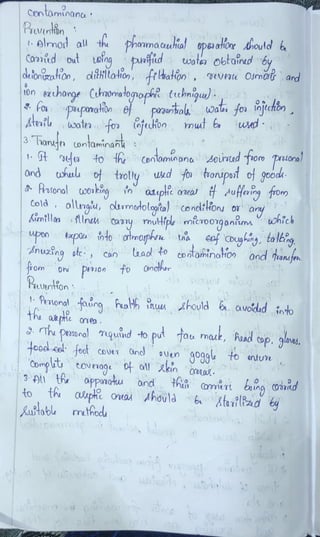 contaminana.
Prevention:
1. Almost all the pharmaceutical operations should be
carried out using purified water obtained by
deionization, distillation, filtration, reverse osmosis and
ion exchange (chromatographic technique).
2. For preparation of parentrals water for injection,
sterile water for injection must be used.
3 Transfer contaminants:
1. It refer to the contaminana sourced from personal
and wheels of trolly used for transport of goods.
2. Personal working in aseptic areas if suffering from
cold, allergies, dermatological conditions or any
similler illness carry multiple microorganisms which
upon expou into atmosphere via coughing, talking,
sneezing etc., can lead to contamination and transfer
from one person to another
Prevention:
1. Personal facing health issues should be avoided into
the aseptic area.
2. The personal required to put face mask, head cap, gloves,
foot cover and even goggle to ensure
complete coverage of all skin areas.
3 All the apparatus and this carriers being carried
to the aseptic areas should be sterilized by
suitable methods